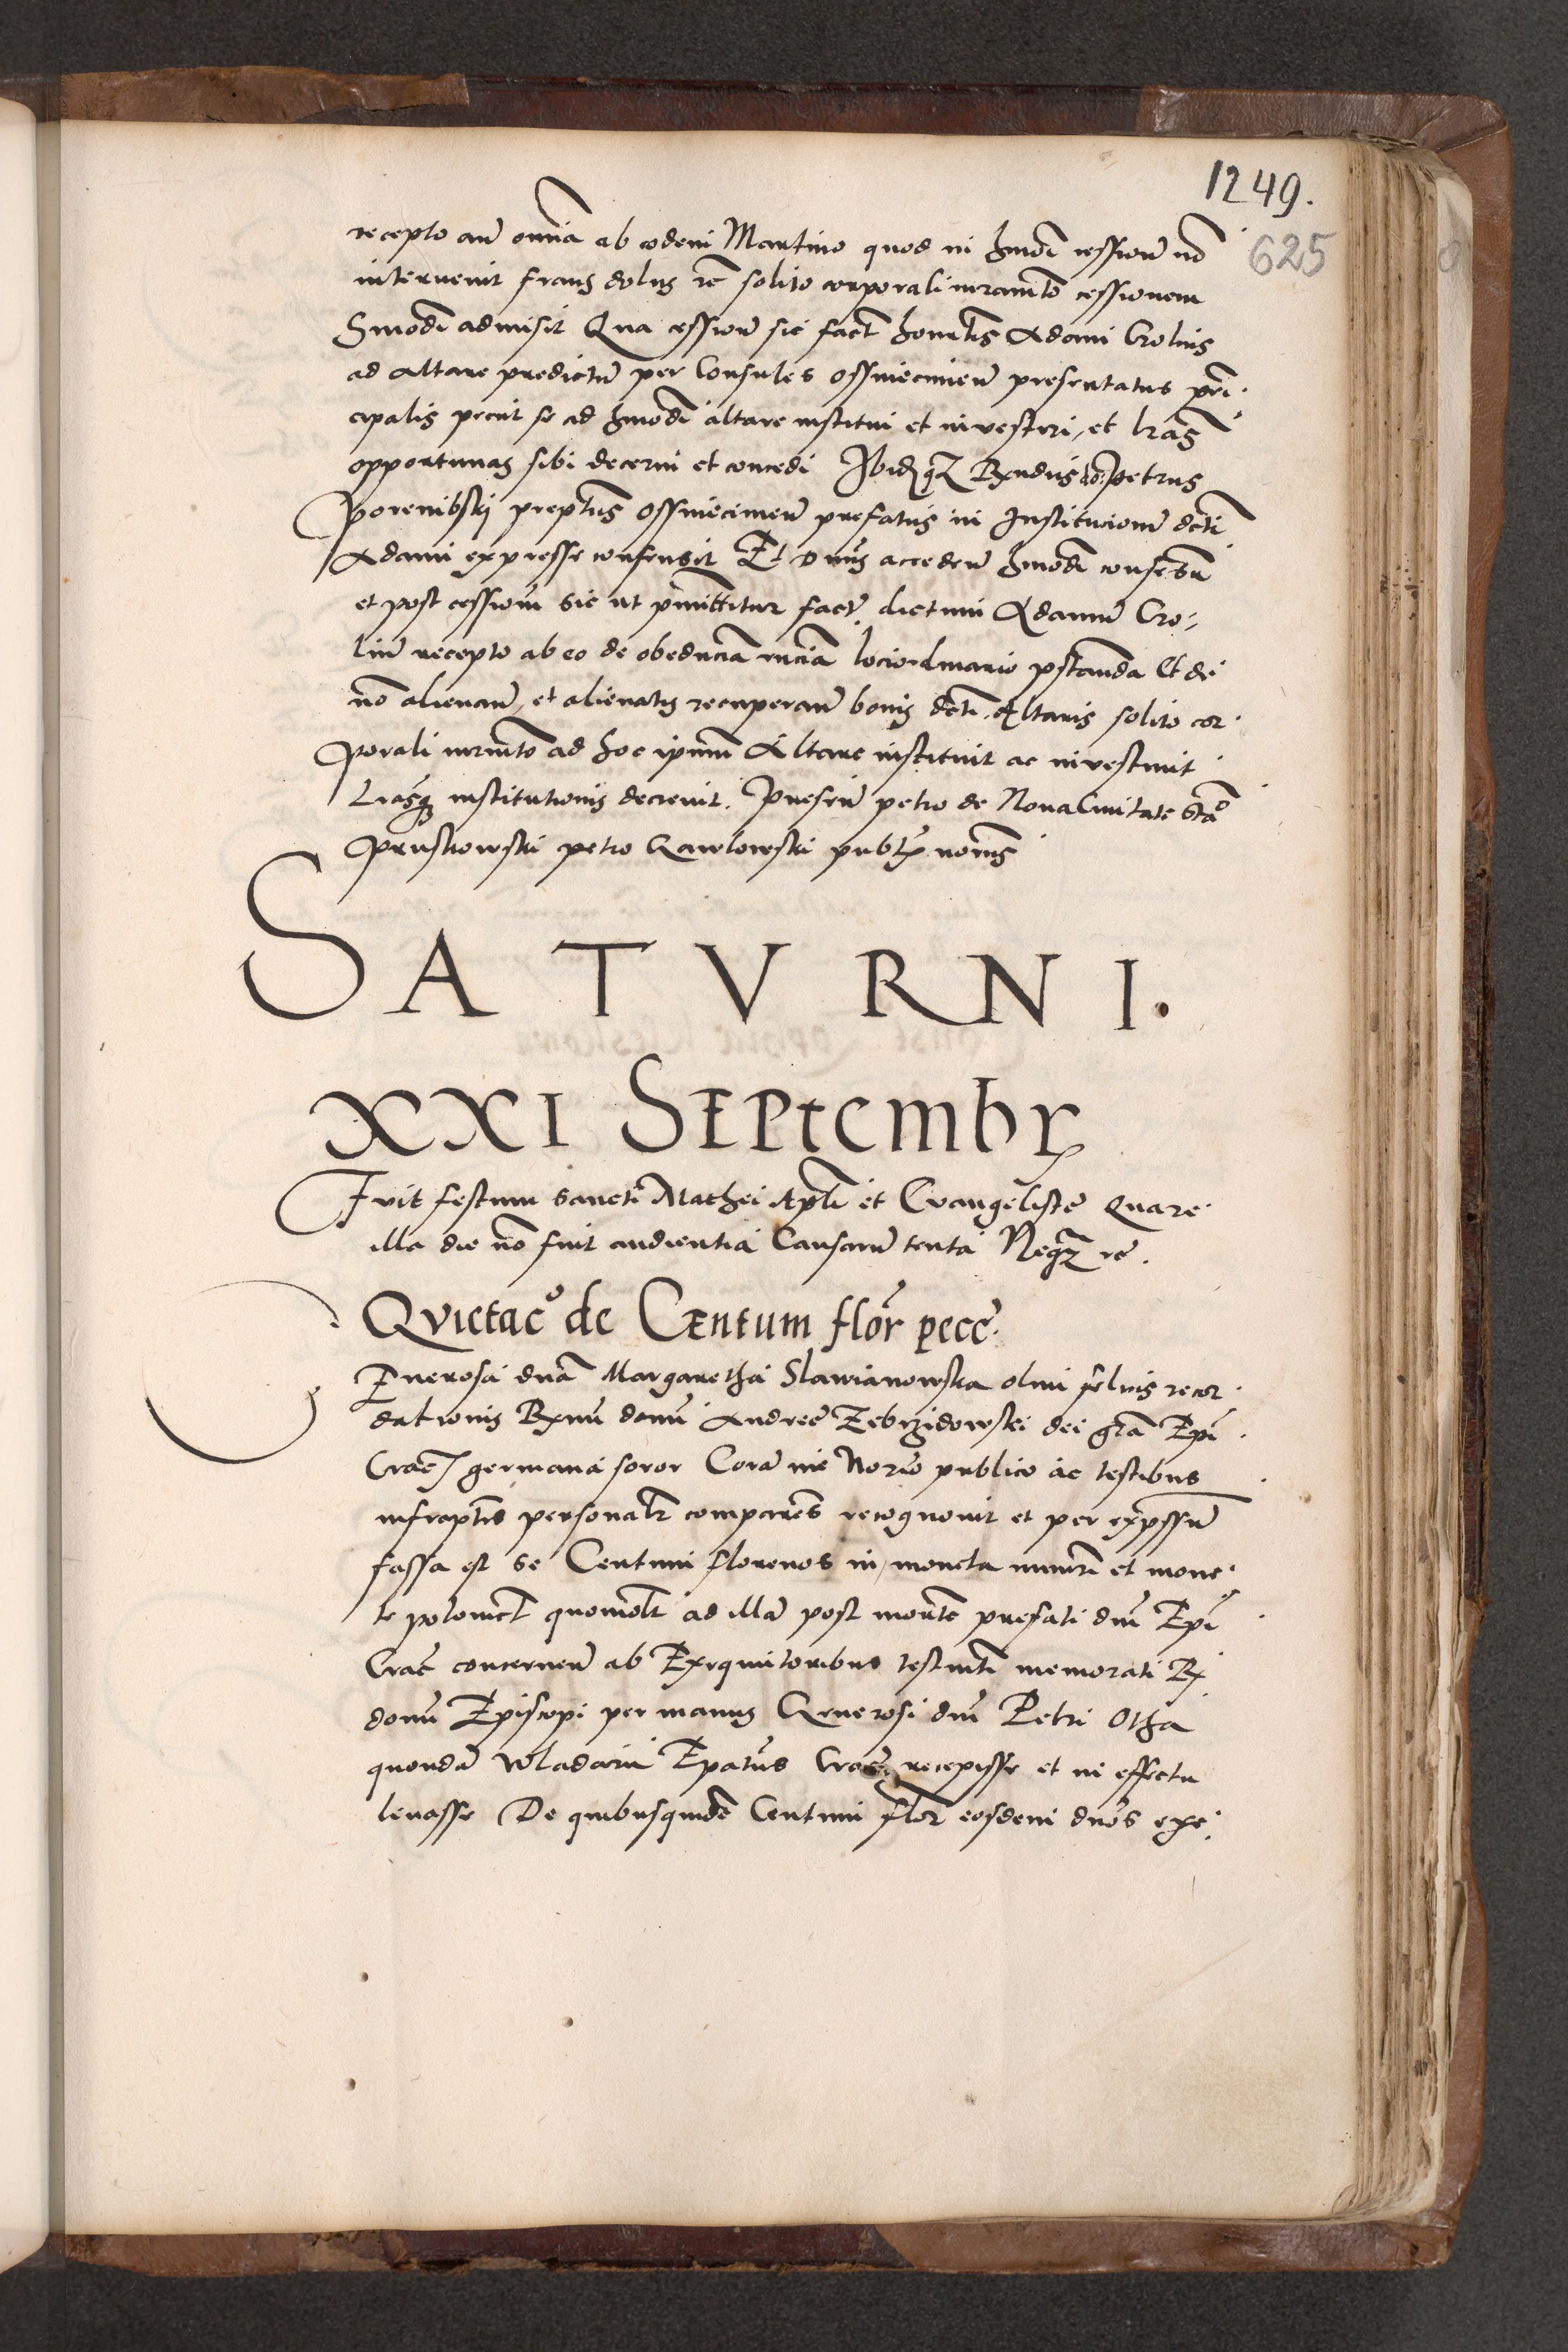 1249.
625
recepto aut̄ om̄ia ab eodem Martino quod in hmōi cessione nō
intervenit fraus dolus rc̄ solito corporali iuramēto cessionem
hmōdi admisit Qua cessione sic fact̄ honestus Adam Crolius
ad altare predictū per Consules ossviecimen̄ presentatus prin·
cipalis petiit se ad hmōdi altare institui et investiri, et lr̄as
opportunas sibi decerni et concedi Ibidēq̄ꝫ Rn̄dus dn̄s Petrus
Porembskj prep̄tus Ossviecimen̄ prefatus in Institucionē dc̄ti
Adami expresse consensit Et Dn̄us acceden̄ hmōdi consēsu
et post cessionē sic ut p̄mittitur fact̄, dictum Adamū Cro-
liū recepto ab eo de obediēcia loci ordinario p̄standa Et de
nō alienan̄, et alienatis recuperan̄ bonis dc̄ti Altaris solito cor·
porali iurmēto ad hoc ipsum Altare instituit ac investivit
Lr̄asq̄ꝫ institutionis decrevit. Presen̄ petro de Nova Civitate Sta
Pruskowski petro Pawlowski publ̄ notariis
SATVRNI.
XXI SEPtembꝝ
Fvit festum Sancti Mathei Ap̄li et Evangelistę Quare
illa die nō fuit audientia Causarū tenta Neqꝫ rc̄.
QVIetacº de CEntum flor̄ pecc̄.
Generosa dn̄a Margaretha Slawianowska olim felicis recor·
dationis Rx̄mi domī Andreę Zebrzidowski dei gr̄a Epī
Crac̄ germana soror Corā me Nor̄io publico ac testibus
infrap̄tis personal̄r comparēs recognovit et per exp̄ssum
fassa est se Centum florenos in moneta numeri et mone·
te polonicl̄ quomōl̄t ad illā post mortē prefati dn̄i Epī
Crac̄ concernen̄ ab Exequutoribus testmēti memorati Rx̄
domī Episcopi per manus Generosi dn̄i Petri Otha
quondā Wladarii Ep̄atus Crac̄ recepisse et in effectu
levasse De quibusquidē Centum flor̄ eosdem dn̄os exe·